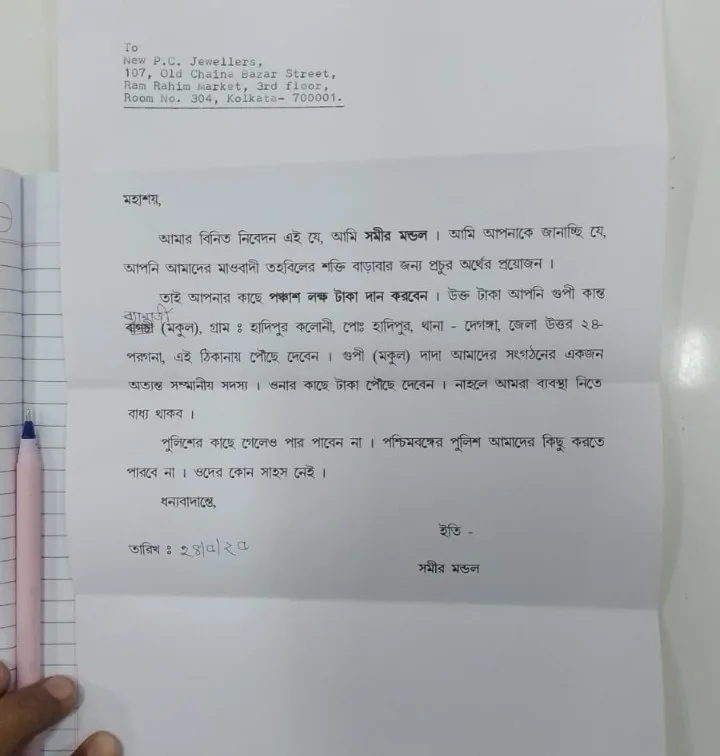 To
New P.C. Jewellers,
107, Old Chaina Bazar Street,
Ram Rahim Market, 3rd floor,
Room No. 304, Kolkata- 700001.
মহাশয়,
আমার বিনিত নিবেদন এই যে, আমি সমীর মন্ডল । আমি আপনাকে জানাচ্ছি যে,
আপনি আমাদের মাওবাদী তহবিলের শক্তি বাড়াবার জন্য প্রচুর অর্থের প্রয়োজন ।
তাই আপনার কাছে পঞ্চাশ লক্ষ টাকা দান করবেন । উক্ত টাকা আপনি গুপী কান্ত
(মকুল), গ্রাম ঃ হাদিপুর কলোনী, পোঃ হাদিপুর, থানা - দেগঙ্গা, জেলা উত্তর ২৪-
পরগনা, এই ঠিকানায় পৌঁছে দেবেন । গুপী (মকুল) দাদা আমাদের সংগঠনের একজন
অত্যন্ত সম্মানীয় সদস্য । ওনার কাছে টাকা পৌঁছে দেবেন । নাহলে আমরা ব্যবস্থা নিতে
বাধ্য থাকব ।
পুলিশের কাছে গেলেও পার পাবেন না । পশ্চিমবঙ্গের পুলিশ আমাদের কিছু করতে
পারবে না । ওদের কোন সাহস নেই ।
ধন্যবাদান্তে,
ইতি -
তারিখ ঃ
সমীর মন্ডল